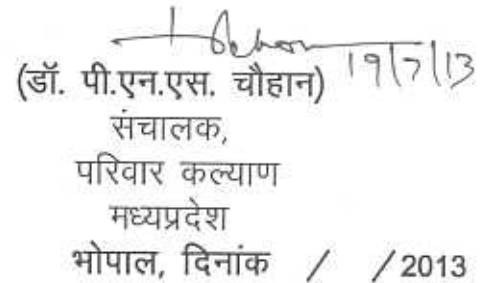 19/7/13
(डॉ. पी.एन.एस. चौहान)
संचालक,
परिवार कल्याण
मध्यप्रदेश
भोपाल, दिनांक / / 2013